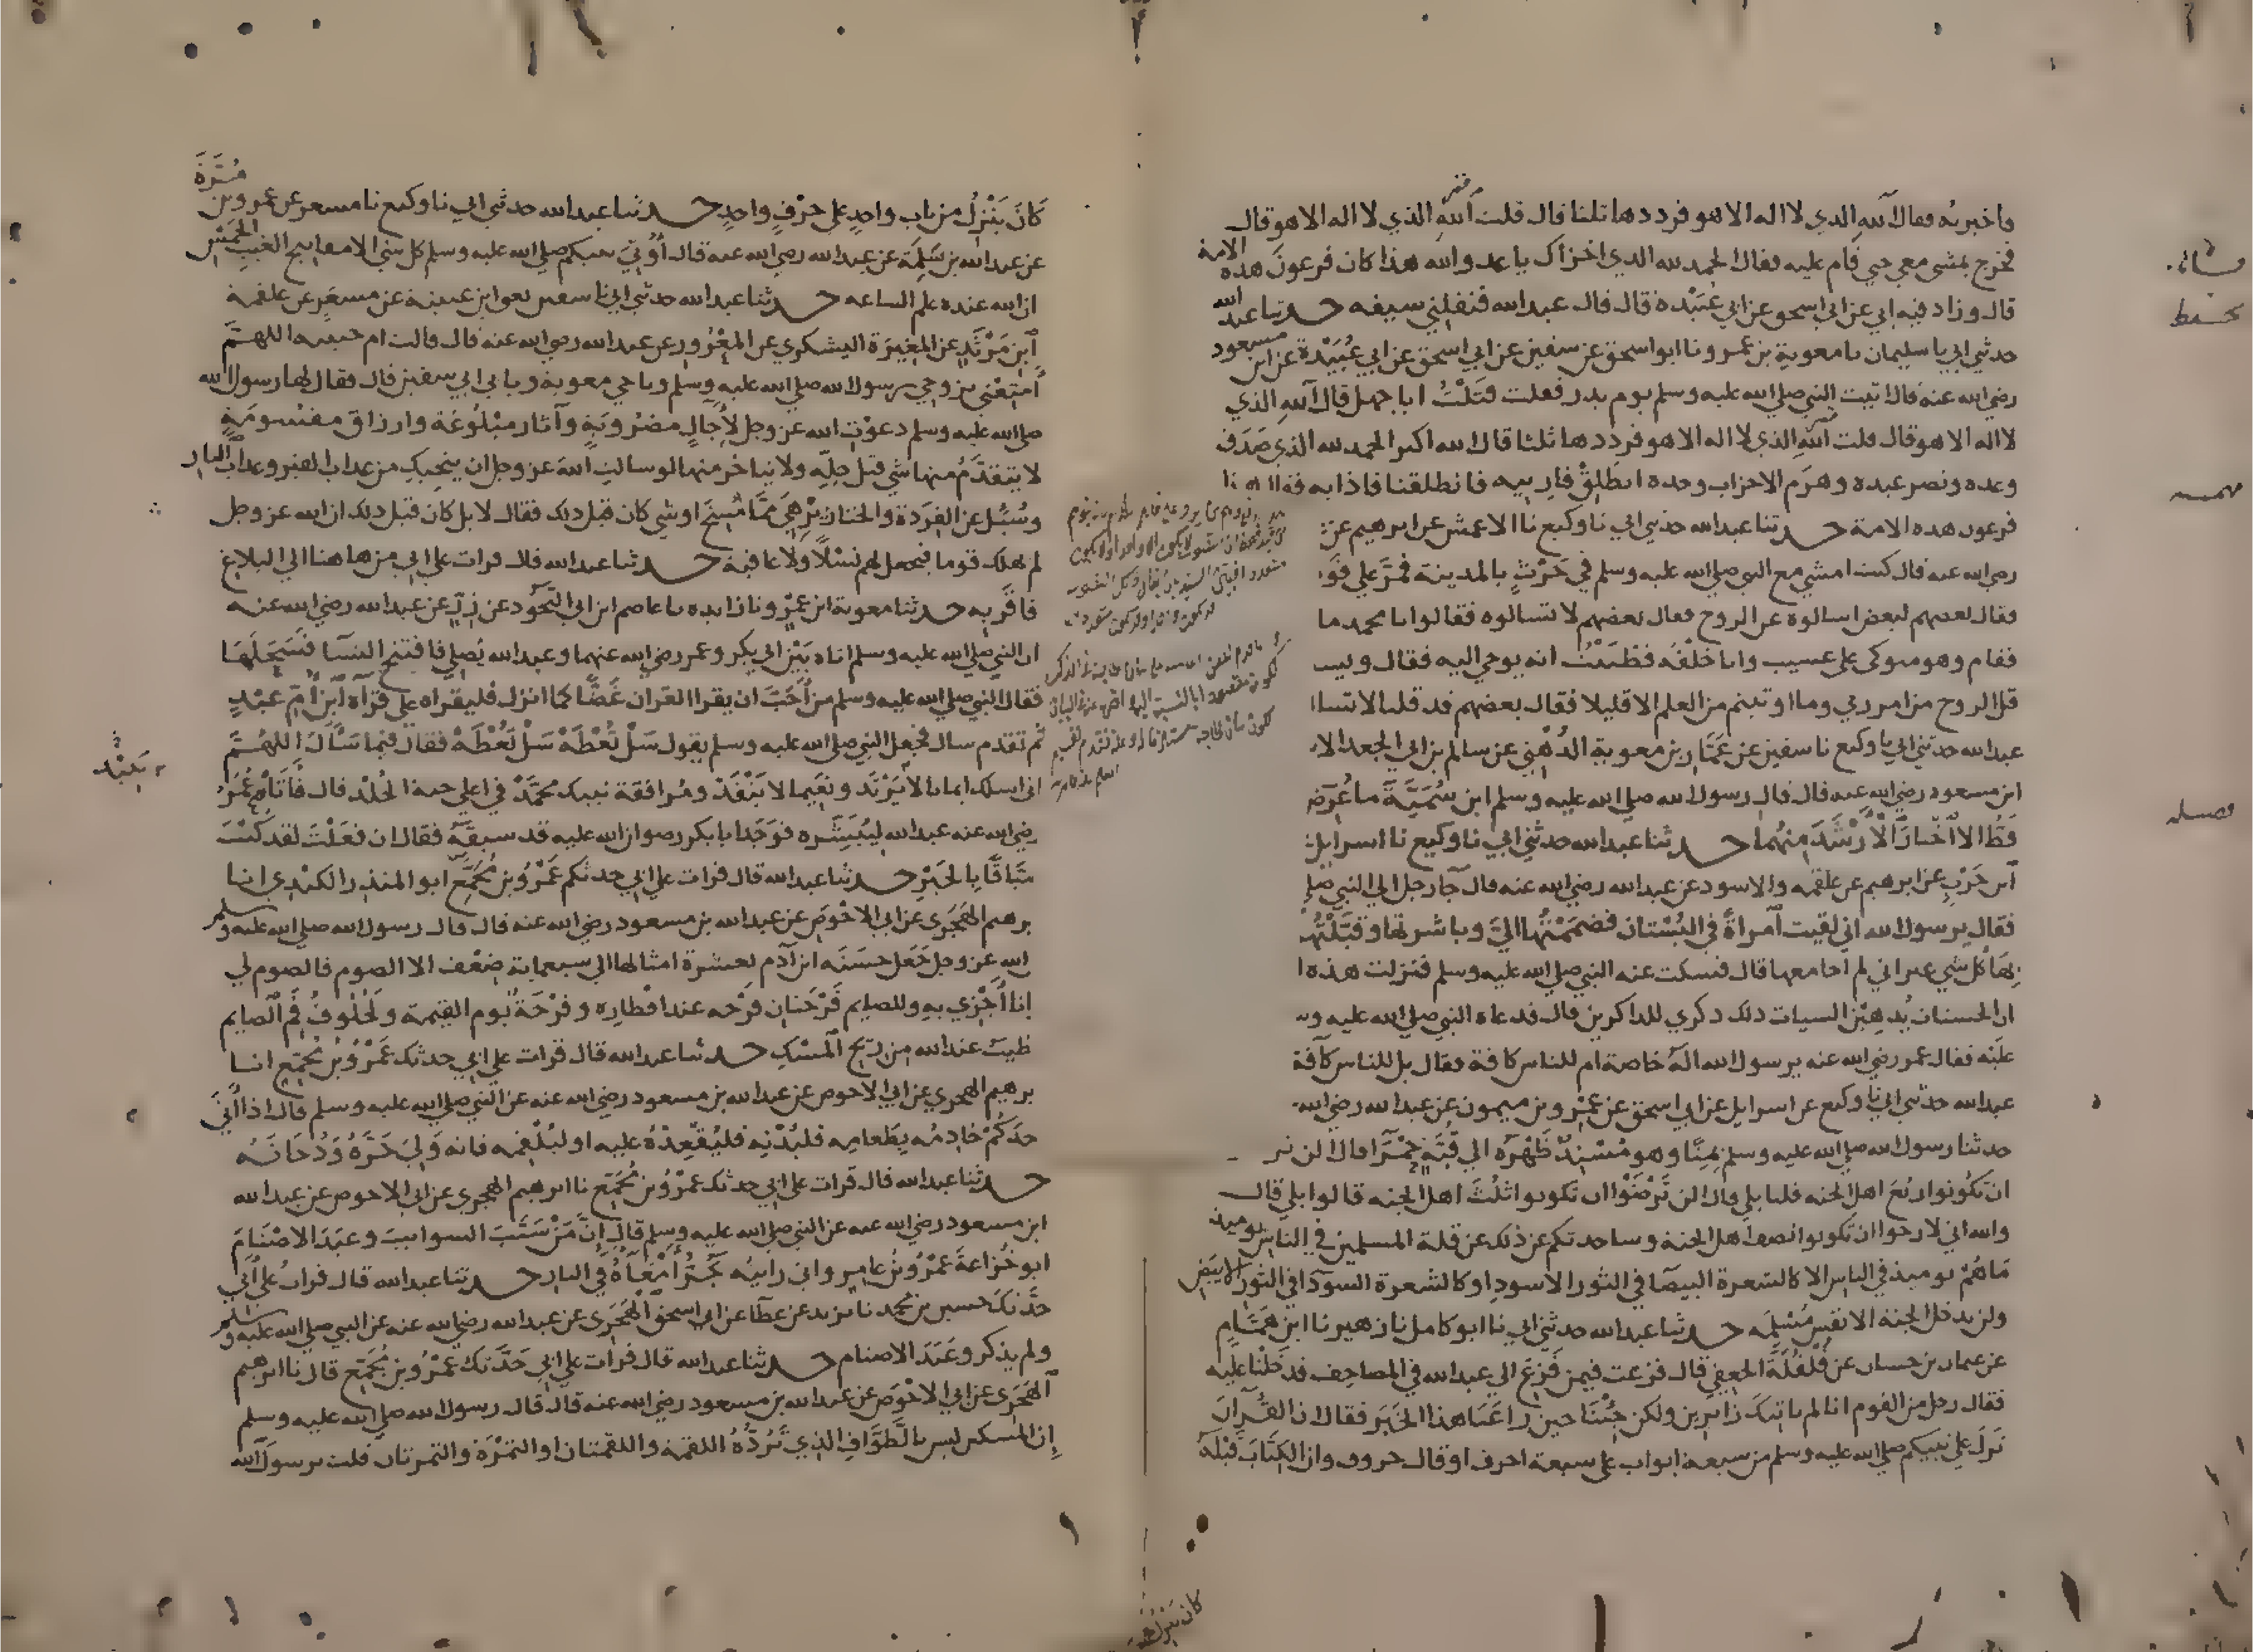 فاخبرته فقال آلله الذي لا اله الا هو فرددها ثلثا قال قلت آلله الذي لا اله الا هو قال
فخرج يمشي معي حتى قام عليه فقال الحمد لله الذي اخزاك يا عدو الله هذا كان فرعون هذه الامة
قال وزاد فيه ابي عن ابي اسحق عن ابي عُبَيْدة قال قال عبد الله فنفلني سيفه حدثنا عبد الله
حدثني ابي نا سليمان نا معوية بن عمرو نا ابو اسحق عن سفين عن ابي اسحق عن ابي عُبَيْدة عن ابن مسعود
رضي الله عنه قال اتيت النبي صلى الله عليه وسلم يوم بدر فقلت قَتَلْتُ ابا جهل قال آلله الذي
لا اله الا هو قال قلت آلله الذي لا اله الا هو فرددها ثلثا قال الله اكبر الحمد لله الذي صَدَق
وعده ونصر عبده وهزم الاحزاب وحده انطَلِقْ فارنيه فانطلقنا فاذا به فقال هذا
فرعون هذه الامة حدثنا عبد الله حدثني ابي نا وكيع نا الاعمش عن ابرهيم عن
رضي الله عنه قال كنت امشي مع النبي صلى الله عليه وسلم في حَرْثٍ بالمدينة فمَرَّ على قو
فقال بعضهم لبعض اسالوه عن الروح فقال بعضهم لا تسالوه فقالوا يا محمد ما
فقام وهو متوكئ على عسيب وانا خَلْفَه فظَنَنْتُ انه يوحى اليه فقال ويس
قل الروح من امر ربي وما اوتيتم من العلم الا قليلا فقال بعضهم قد قلنا لا تسالو
عبد الله حدثني ابي نا وكيع نا سفين عن عَمَّار بن معوية الدُهْني عن سالم بن ابي الجعد الا
ابن مسعود رضي الله عنه قال قال رسول الله صلى الله عليه وسلم ابن سُمَيَّةَ ما عُرِضَ
قَطُّ الا اخْتارَ الأرْشَدَ مِنهُما حدثنا عبد الله حدثني ابي نا وكيع نا اسرايل
بن حَرْبٍ عن ابرهيم عن علقمه والاسود عن عبد الله رضي الله عنه قال جآ رجل الى النبي صلى
فقال يرسول الله اني لقيت امراةً في البُسْتان فضَمَمْتُها اليَّ وباشرتها وقَبَّلْتُه
بِهَا كل شي غير اني لم اجامعها قال فسكت عنه النبي صلى الله عليه وسلم فنزلت هذه ا
ان الحسنات يُذهِبْنَ السيات ذلك ذكرى للذاكرين قال فدعاه النبي صلى الله عليه وس
علَيْه فقال عمر رضي الله عنه يرسول الله اَلَهُ خاصة ام للناس كافة فقال بل للناس كآفة
عبد الله حدثني ابي نا وكيع عن اسرايل عن ابي اسحق عن عَمْرو بن ميمون عن عبد الله رضي الله
حدثنا رسول الله صلى الله عليه وسلم بِمِنًا وهو مُسْنِدٌ ظَهْرَه الى قُبَّةٍ حَمْرَا قال الن تر
ان تكونوا رُبُعَ اهل الجنه قلنا بلى قال الن تَرْضَوْا ان تكونوا ثُلُثَ اهل الجنه قالوا بلى قال
والله اني لارجوا ان تكونوا نصف اهل الجنة وساحدثكم عن ذلك عن قلة المسلمين في الناس يوميذ
مَا هُمْ يوميذ في الناس الا كالشعرة البيضا في الثور الاسود او كالشعرة السوْدآ في الثور الابيَض
ولن يدخل الجنة الا نفس مُسْلِمَه حدثنا عبد الله حدثني ابي نا ابو كامل نا زهير نا ابن هَمَّامٍ
عن عثمان بن حسان عن فُلْفُلَةَ الجعفي قال فزعت فيمن فَزِعَ الى عبد الله في المصاحف فدَخَلْنا عليه
فقال رجل من القوم انا لم ناتِك زايرين ولكن جِئْنَا حين راعَنا هذا الخَبَر فقال ان القُرآن
نَزَلَ على نبيكم صلى الله عليه وسلم من سبعة ابواب على سبعة احرف او قال حروف وان الكِتَابَ قبْلَهُ
كان ينزل
كَانَ يَنْزِلُ من باب واحدٍ على حَرْفٍ واحدٍ حدثنا عبد الله حدثني ابي نا وكيع نا مسعر عن عمرو بن مُرَّةَ
عن عبد الله بن سَلِمَة عن عبد الله رضي الله عنه قال أُوُتِيَ نبيكم صلى الله عليه وسلم كل شي الا مفاتيح الغيب الخَمْس
ان الله عنده علم الساعه حدثنا عبد الله حدثني ابي نا سفين يعني ابن عيينة عن مسعَرٍ عن علقمة
ابن مَرْثَدٍ عن المغِيرَة اليشكري عن المعْرُورِ عن عبد الله رضي الله عنه قال قالت ام حبيبه اللهمَّ
أمتِعْني بزوجي رسول الله صلى الله عليه وسلم وباخي معوية وبابي ابي سفين قال فقال لها رسول الله
صلى الله عليه وسلم دعوْتِ الله عز وجل لآجالٍ مضرُوبَةٍ وآثار مبْلُوغَة وارزاق مقسومَةٍ
لا يتقدَّمُ منها شي قبل حِلِّه ولا يتاخر منها لو سالتِ اللهَ عز وجل ان ينجيكِ من عذاب القبر وعذاب النار
وسُئِل عن القِرَدة والخنازير هِيَ مِمَّا مُسِخَ او شي كان قبل ذلك فقال لا بل كان قبل ذلك ان الله عز وجل
لم يهلك قوما فيجعل لهم نسْلًا ولا عاقبة حدثنا عبد الله قال قرات على ابي من هاهنا الى البلاغ
فاقَرَّ به حدثنا معوية ابن عمْرٍو نا زايده نا عاصم ابن ابي النَّجُود عن زِرٍّ عن عبد الله رضي الله عنه
ان النبي صلى الله عليه وسلم اتاه بَيْن ابي بكر وعمر رضي الله عنهما وعبد الله يُصلي فافتتح النسآ فسَجَلَهَا
فقال النبي صلى الله عليه وسلم من أَحَبَّ ان يقرا القران غَضًّا كما انزل فليقراه على قرآه ابن أُمِّ عبْدٍ
ثم تقدم سال فجعل النبي صلى الله عليه وسلم يقول سَلْ تُعْطَهْ سَلْ تُعْطَهْ فقال فيما سَأَلَ اللهُمَّ
اني اسلك ايمانا لا يَرْتَد ونَعِيما لا يَنْفَدُ ومُرافَقة نبيك مُحَمَّدْ في اعلى جنة الخُلْد قال فَأَتَاهُ عُمَرُ
رضي الله عنه عبد الله ليُبَشِّره فوَجَد ابا بكر رضوان الله عليه قد سبقَهُ فقال ان فعَلْتَ لقد كُنْتَ
سَبَّاقًا بالخَيْرِ حدثنا عبد الله قال قرات على ابي حدثكم عَمْرُو بن مُجَمِّعٍ ابو المنذر الكِنْدِي انا
برهيم الهَجَرِي عن ابي الاحْوَصِ عن عبد الله بن مسعود رضي الله عنه قال قال رسول الله صلى الله عليه وسلم
الله عز وجل جَعَل حسَنَة ابن آدم بعشرة امثالها الى سبعماية ضِعْف الا الصوم فالصوم لي
انا أَجْزِي بِه وللصايم فَرْحَتان فَرْحَه عند افْطارِه وفَرْحَةٌ يوم القيمة ولَخُلُوفُ فَمِ الصايم
طيبُ عند الله مِن رِيحِ المِسْكِ حدثنا عبد الله قال قرات على ابي حدثك عَمْرُو بْن مُجَمِّعٍ انا
برهيم الهجري عن ابي الاحوص عن عبد الله بن مسعود رضي الله عنه عن النبي صلى الله عليه وسلم قال اذا أتَى
حدَكُمْ خادِمُه بِطَعامِه فليُدْنِه فليُقعِدْهُ عليه او ليُلْقِمْه فانه وَلِيَ حَرَّهُ ودُخَانَهُ
حدثنا عبد الله قال قرات على ابي حدثك عمْرُو بن مُجَمِّع نا ابرهيم الهجري عن ابي الاحوص عن عبد الله
ابن مسعود رضي الله عنه عن النبي صلى الله عليه وسلم قال إنَّ مَنْ سَيَّبَ السوايبَ وعبَدَ الاصْنَامَ
ابو خُزاعةَ عَمْرُو بْن عامِر واني رايتُه يَجُرُّ أمْعَآهُ في النار حدثنا عبد الله قال قراتُ على أبي
حدَّثَكَ حسين بن محمد نا يزيد عن عطآ عن ابي اسحق الهَجَري عن عبد الله رضي الله عنه عن النبي صلى الله عليه وسلم
ولم يذكر وعَبَدَ الاصنام حدثنا عبد الله قال قرات على ابي حَدَّثَكَ عمْرُو بن مُجَمِّع قال نا ابرهيم
الهَجَرِي عن ابي الاحْوَص عن عبد الله بن مسعود رضي الله عنه قال قال رسول الله صلى الله عليه وسلم
إن المسكين ليس بالطَّوَّافِ الذي تَرُدُّهُ اللقمة واللقمتان او التمْرَة والتمرتان قلت يرسول الله